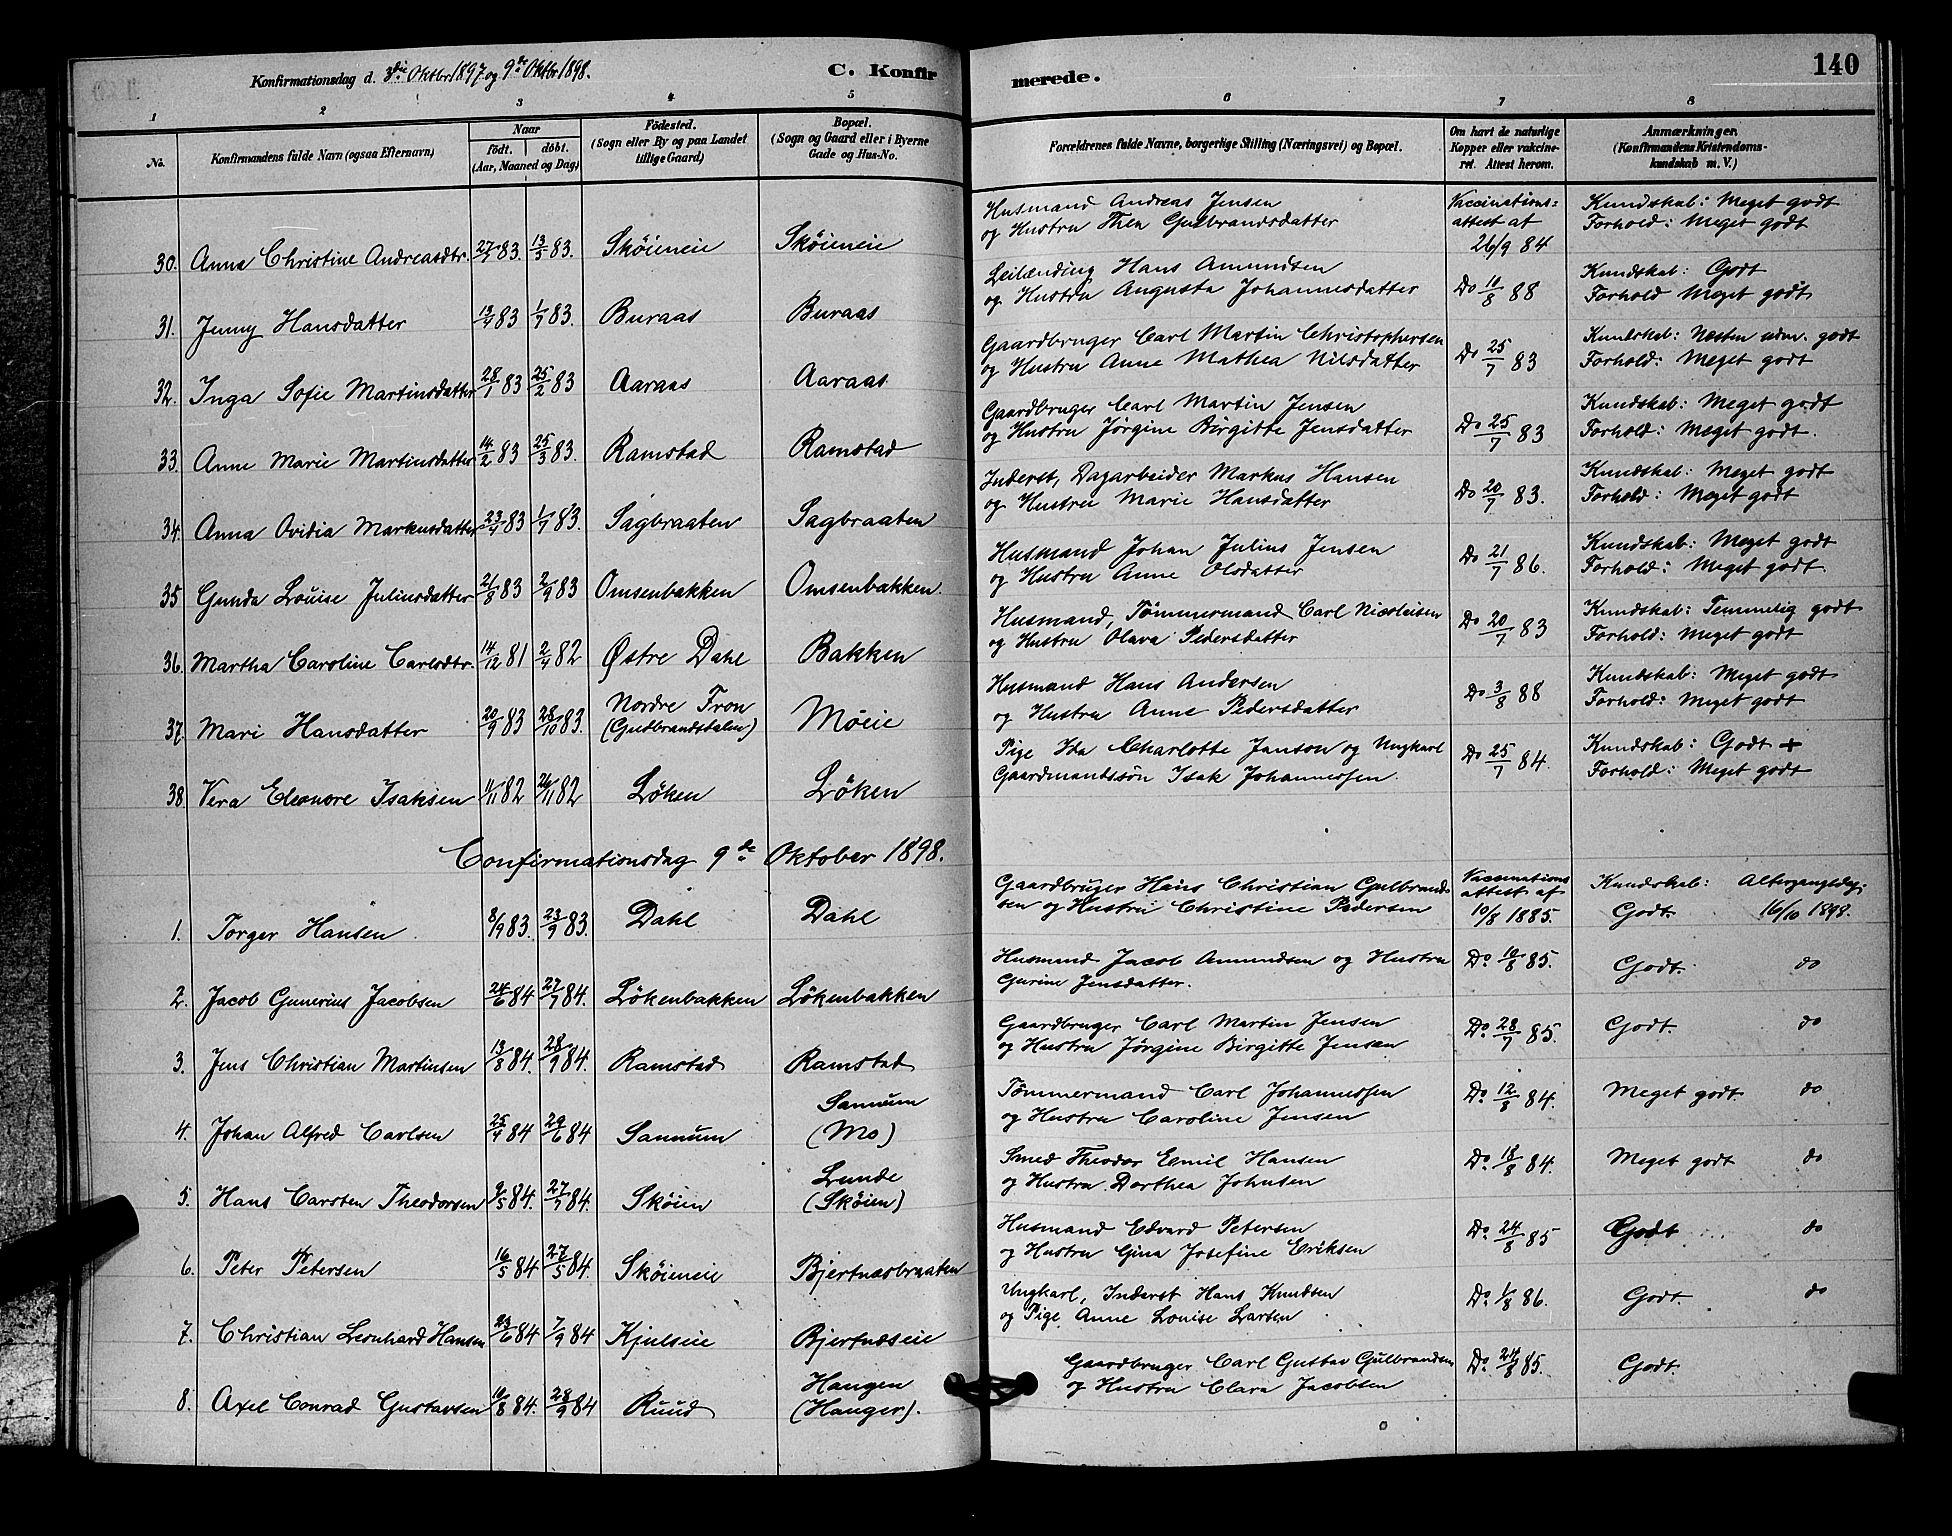 Konfirmationsdag d. 3die Oktbr 1897 og 9de Oktbr 1898.
C. Konfirmerede.
140
1 2 3 4 5 6 7 8
No.
Konfirmandens fulde Navn (ogsaa Efternavn)
Naar
födt. döbt.
(Aar, Maaned og Dag)
Födested.
(Sogn eller By og paa Landet
tillige Gaard)
Bopæl.
(Sogn og Gaard eller i Byerne
Gade og Hus-No.
Forældrenes fulde Navne, borgerlige Stilling (Næringsvei) og Bopæl.
Om havt de naturlige
Kopper eller vakcine-
ret. Attest herom.
Anmærkninger.
(Konfirmandens Kristendoms-
kundskab m. V.)
Husmand Andreas Jensen Vaccinations= Kundskab: Meget godt
og Hustru Thea Gulbrandsdatter attest af Forhold: Meget godt
30. Anna Christine Andreasdtr. 13/5 83. Sköieneie Sköieneie 26/9 84
Leilænding Hans Amundsen Kundskab: Godt
og Hustru Augusta Johannesdatter Do 10/8 88 Forhold Meget godt
31. Jenny Hansdatter 13/4 83 1/7 83. Buraas Buraas
Gaardbruger Carl Martin Christophersen Kundskab: Næsten udm. godt
og Hustru Anne Mathea Nilsdatter Do 25/7 83 Forhold: Meget godt
32. Inga Sofie Martinsdatter 28/1 83 25/2 83 Aaraas Aaraas
Gaardbruger Carl Martin Jensen Kundskab: Meget godt
og Hustru Jörgine Birgitte Jensdatter Do 25/7 83 Forhold: Meget godt.
33. Anne Marie Martinsdatter 14/2 83 25/3 83. Ramstad Ramstad
Inderst, Dagarbeider Markus Hansen Kundskab: Meget godt
og Hustru Marie Hansdatter Do 20/7 83. Forhold: Meget godt
34. Anna Ovidia Markusdatter 23/4 83 1/7 83. Sagbraaten Sagbraaten
Husmand Johan Julius Jensen Kundskab: Meget godt
og Hustru Anne Olsdatter Do 21/7 86. Forhold: Meget godt.
35 Gunda Louise Juliusdatter 21/8 83 2/9 83 Omsenbakken Omsenbakken.
Husmand, Tömmermand Carl Nicolaisen Kundskab: Temmelig godt
og Hustru Olava Pedersdatter Do 20/7 83 Forhold: Meget godt
36. Martha Caroline Carlsdtr. 14/12 81 2/4 82 Østre Dahl Bakken
Husmand Hans Andersen Kundskab: Meget godt
og Hustru Anne Pedersdatter Do 3/8 88 Forhold: Meget godt
37. Mari Hansdatter 20/9 83 28/10 83. Nordre Fron (Gudbrandsdalen) Möeie
Pige Ida Charlotte Janson og Ungkarl Kundskab: Godt +
Gaardmandssön Isak Johannessen. Do 25/7 84. Forhold: Meget godt
38. Vera Eleonore Isaksen 26/11 82 Löken Löken
Confirmationsdag 9de Oktober 1898.
Gaardbruger Hans Christian Gulbrand- Vaccinations Kundskab: Altergangsdag:
sen og Hustru Christine Pedersen attest af 10/8 1885. Godt. 16/10 1898.
1. Torger Hansen 8/9 83. 23/9 83. Dahl Dahl
Husmand Jacob Amundsen og Hustru Do. 10/8 85. Godt. do
Gurine Jensdatter.
2. Jacob Gunerius Jacobsen 24/6 84 27/7 84. Lökenbakken Lökenbakken
Gaardbruger Carl Martin Jensen Do. 28/7 85. Godt. do
og Hustru Jörgine Birgitte Jensen
3. Jens Christian Martinsen 13/8 84. 28/9 84. Ramstad Ramstad
Tömmermand Carl Johannessen Do. 12/8 84. Meget godt do
og Hustru Caroline Jensen
4. Johan Alfred Carlsen 25/4 84 29/6 84 Sannum Sannum (Mo)
Smed Theodor Emil Hansen Do. 18/8 84. Meget godt do
og Hustru Dorthea Johnsen
5. Hans Carsten Theodorsen 9/5 84. 27/7 84. Sköien Lunde (Sköien)
Husmand Edvard Petersen Do. 24/8 85 Godt do
og Hustru Gina Josefine Eriksen
6. Peter Petersen 16/5 84 27/5 84. Sköieneie Bjertnæsbraaten
Ungkarl, Inderst Hans Knudsen Do. 1/8 86. Godt. do
og Pige Anne Louise Larsen
7. Christian Leonhard Hansen 23/6 84 7/9 84 Kjulseie Bjertnæseie
Gaardbruger Carl Gustav Gulbrandsen Do. 24/8 85. Godt.
og Hustru Clara Jacobsen
8. Axel Conrad Gustavsen 10/8 84. 28/9 84 Ruud Haugen (Hauger).